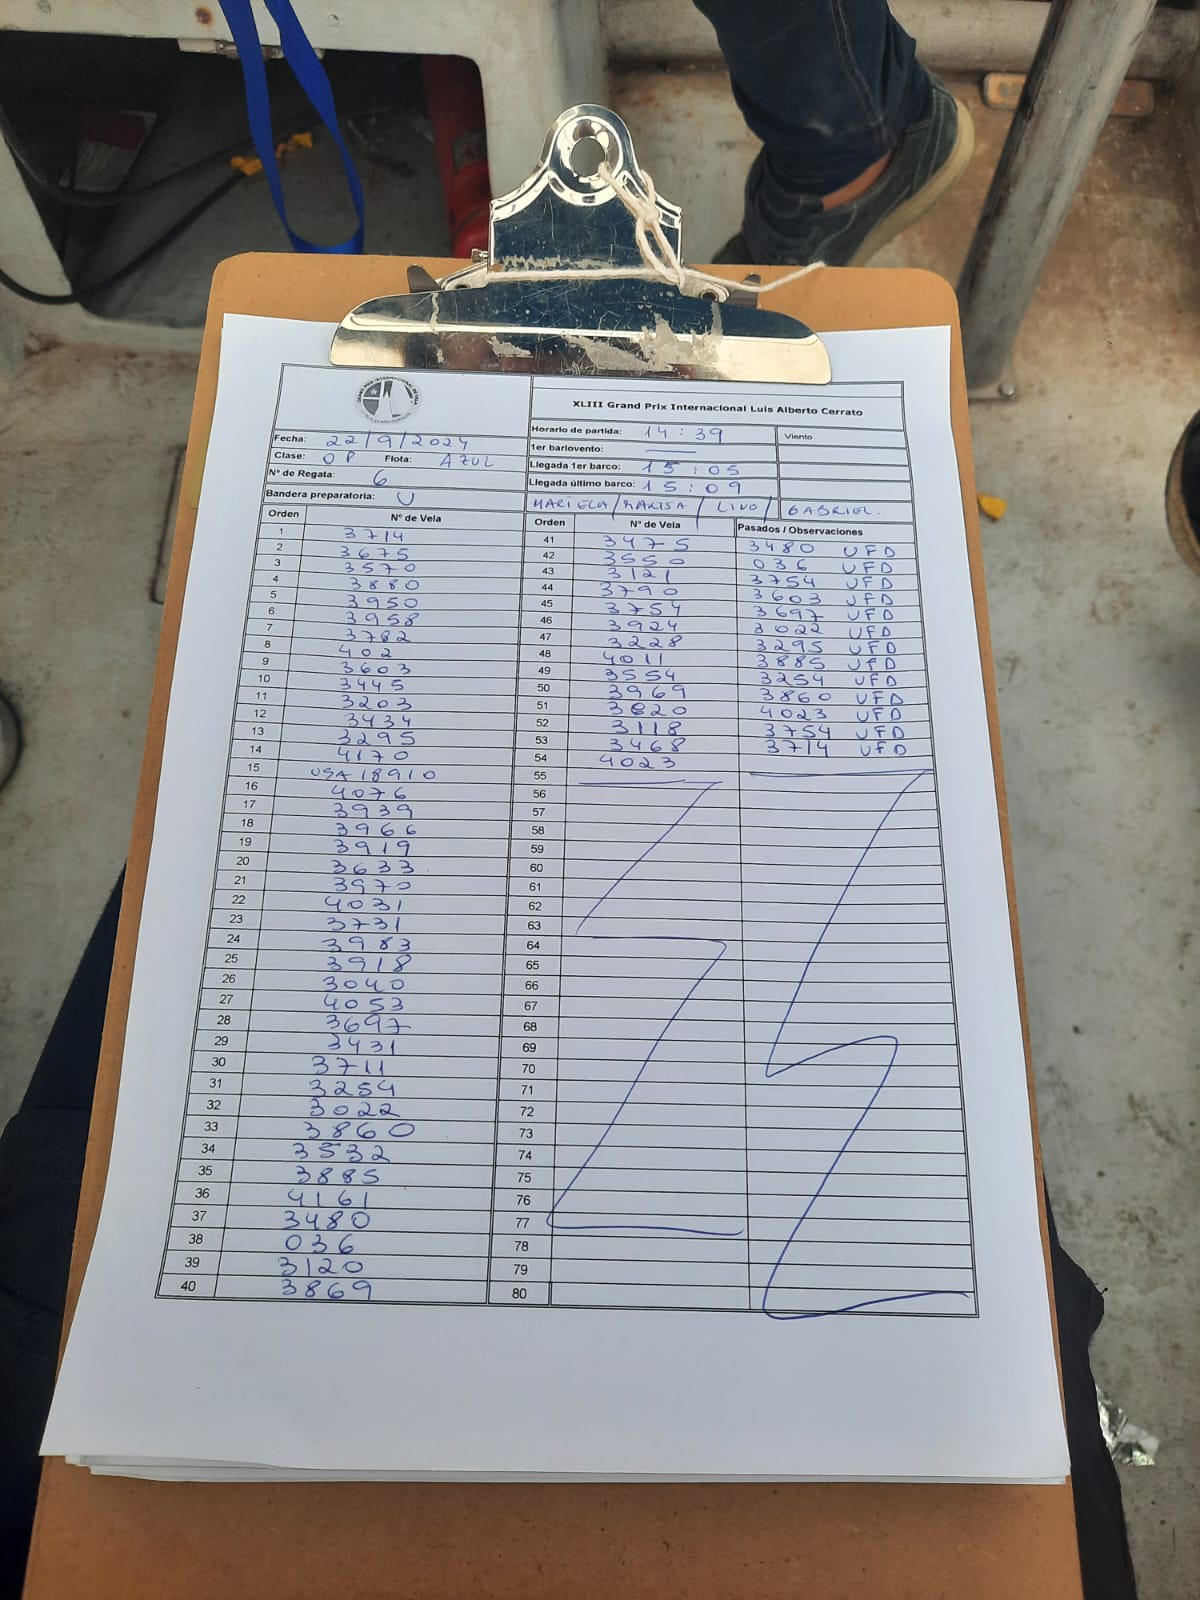 XLIII Grand Prix Internacional Luis Alberto Cerrato
Horario de partida: 14:39 Viento
Fecha: 22/9/2024
1er barlovento:
Clase: OP Flota: AZUL
Llegada 1er barco: 15:05
N° de Regata: 6
Llegada último barco: 15:09
Bandera preparatoria: U
MARIELA/MARISA/LINO/GABRIEL.
Orden N° de Vela
1 3714
2 3675
3 3570
4 3880
5 3950
6 3958
7 3782
8 402
9 3603
10 3445
11 3203
12 3434
13 3295
14 4170
15 USA 18910
16 4076
17 3939
18 3966
19 3919
20 3633
21 3970
22 4031
23 3731
24 3983
25 3918
26 3040
27 4053
28 3697
29 3431
30 3711
31 3254
32 3022
33 3860
34 3532
35 3885
36 4161
37 3480
38 036
39 3120
40 3869
Orden N° de Vela Pasados / Observaciones
41 3475 3480 UFD
42 3550 036 UFD
43 3121 3754 UFD
44 3790 3603 UFD
45 3754 3697 UFD
46 3924 3022 UFD
47 3228 3295 UFD
48 4011 3885 UFD
49 3554 3254 UFD
50 3969 3860 UFD
51 3820 4023 UFD
52 3118 3754 UFD
53 3468 3714 UFD
54 4023
55
56
57
58
59
60
61
62
63
64
65
66
67
68
69
70
71
72
73
74
75
76
77
78
79
80